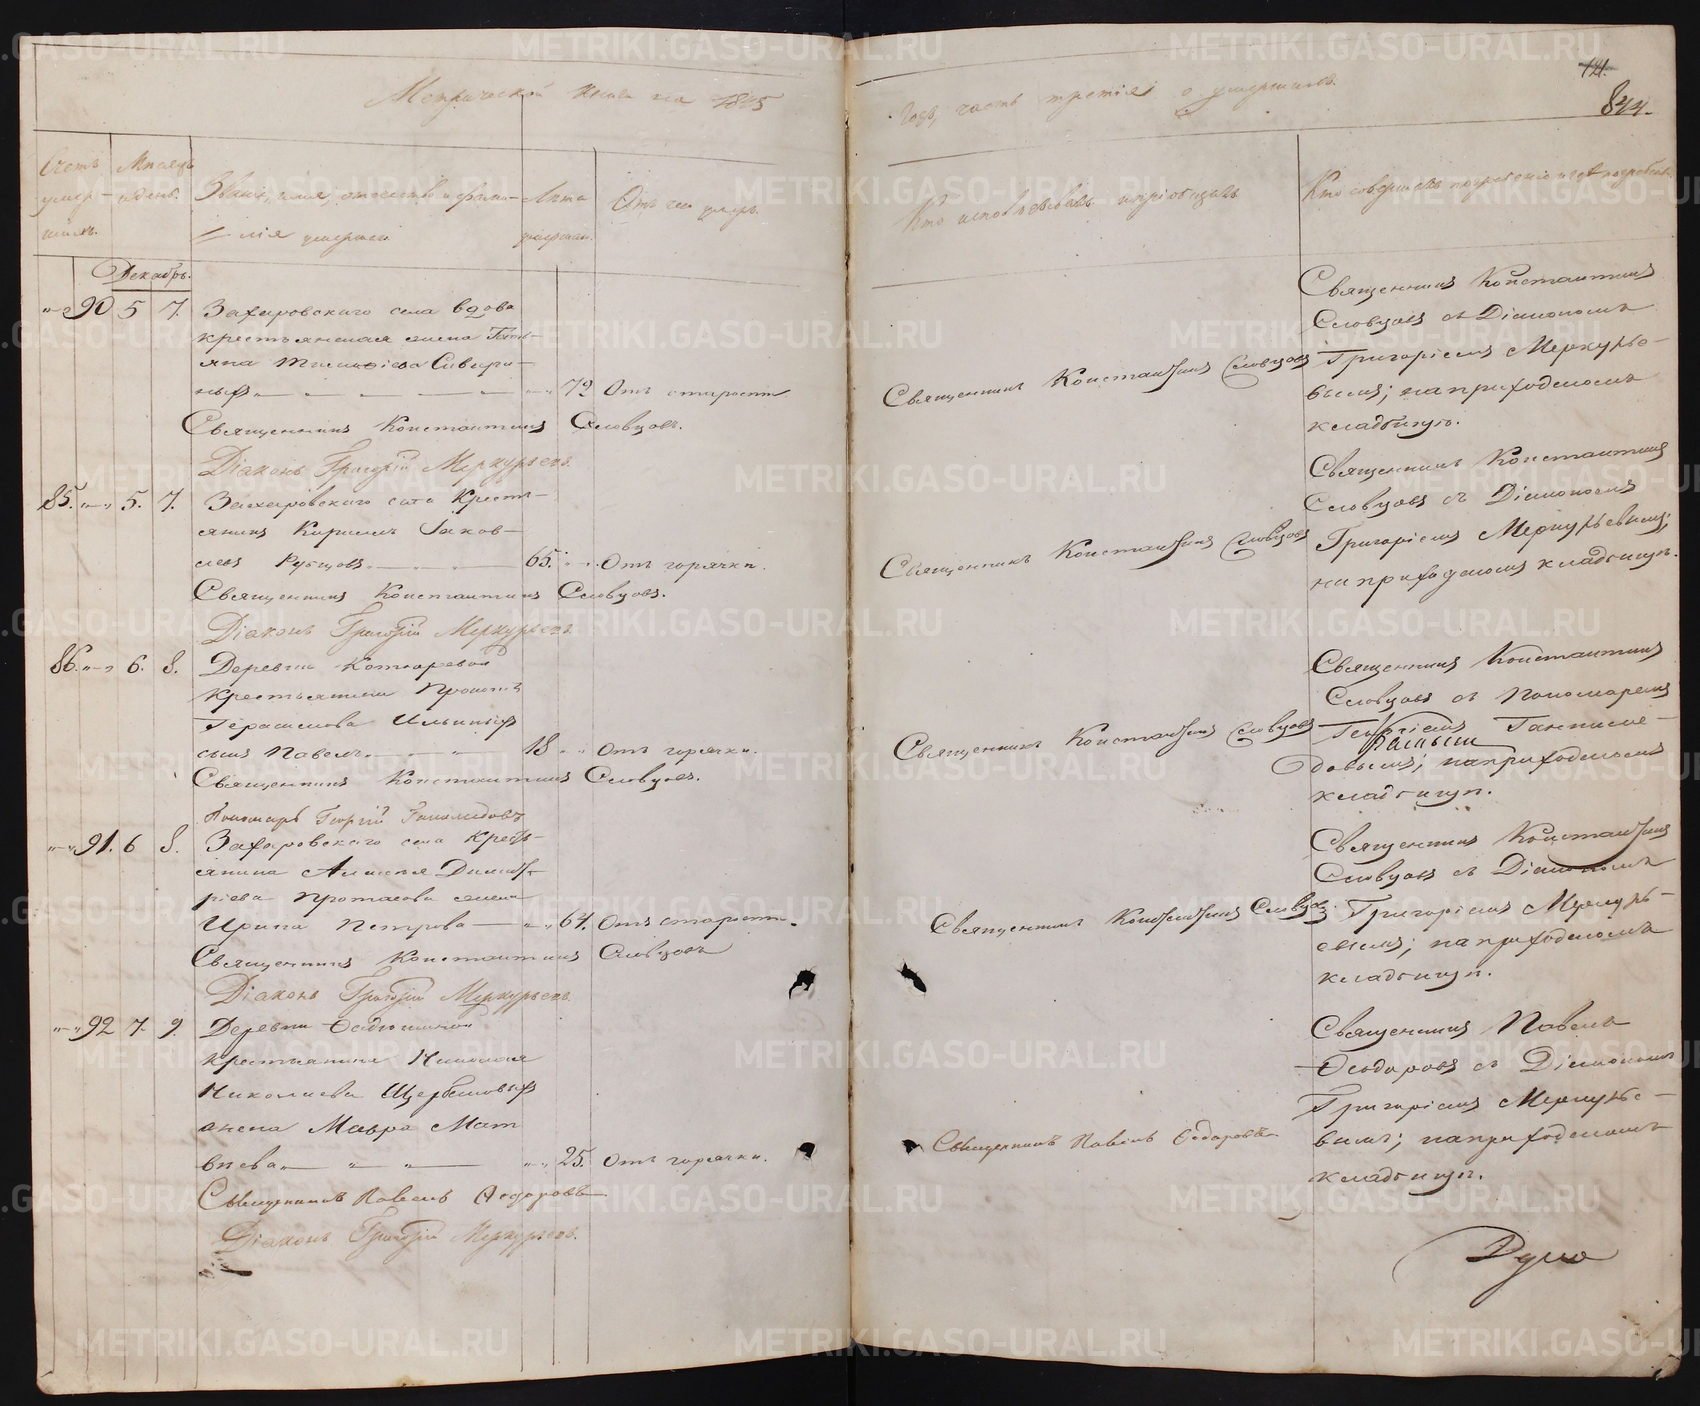 Метрической Книги на 1845
Счетъ умер-
шихъ.
Мѣсяцъ
и день.
Званіе, имя, отчество и фами-
лія умершаго
Лѣта
умершаго.
Отъ чего умеръ.
Декабрь.
90 5 7. Захаровскаго села вдова
крестьянская жена Тать-
яна
ныхъ 72 Отъ старости
Священникъ Константинъ Словцовъ.
Діаконъ Григорій Меркурьевъ.
85. 5. 7. Захаровскаго села Кресть-
янинъ Кирилъ Іаков-
левъ Рубцовъ 65. Отъ горячки.
Священникъ Константинъ Словцовъ.
Діаконъ Григорій Меркурьевъ.
86. 6. 8. Деревни
Крестьянина
Герасимова Ильиныхъ
сынъ Павелъ 18 Отъ горячки.
Священникъ Константинъ Словцовъ.
Пономарь Георгій
91. 6 8. Захаровскаго села Кресть-
янина Алексѣя Димит-
ріева Протасова жена
Ирина Петрова 64. Отъ старости.
Священникъ Константинъ Словцовъ
Діаконъ Григорій Меркурьевъ
92 7. 9. Деревни
крестьянина Николая
Николаева Щербаковыхъ
жена Мавра Мат
вѣева 25. Отъ горячки.
Священникъ Павелъ Ѳедоровъ
Діаконъ Григорій Меркурьевъ.
121.
844.
Годъ, часть третія о умершихъ.
Кто исповѣдывалъ и пріобщалъ
Кто совершалъ погребеніе и гдѣ погребены
Священникъ Константинъ Словцовъ
Священникъ Константинъ
Словцовъ съ Діакономъ
Григоріемъ Меркурье-
вымъ; на приходскомъ
кладбищѣ.
Священникъ Константинъ Словцовъ
Священникъ Константинъ
Словцовъ съ Діакономъ
Григоріемъ Меркурьевымъ;
на приходскомъ кладбищѣ.
Священникъ Константинъ Словцовъ
Священникъ Константинъ
Словцовъ съ Пономаремъ
Георгіемъ
довымъ; на приходскомъ
кладбищѣ.
Священникъ Константинъ Словцовъ
Священникъ Константинъ
Словцовъ съ Діакономъ
Григоріемъ Меркурь-
евымъ; на приходскомъ
кладбищѣ.
Священникъ Павелъ Ѳедоровъ
Священникъ Павелъ
Ѳеодоровъ съ Діакономъ
Григоріемъ Меркурье-
вымъ; на приходскомъ
кладбищѣ.
METRIKI.GASO-URAL.RU